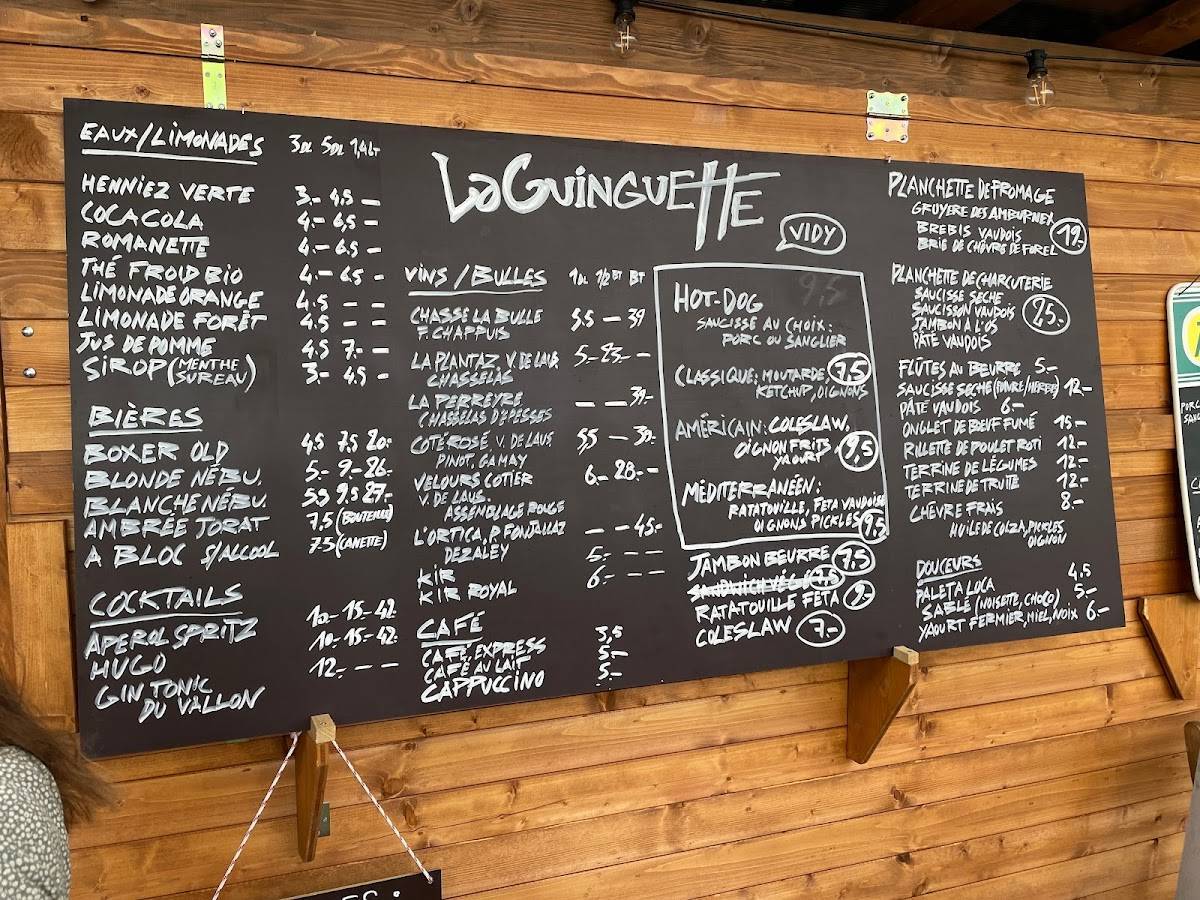 EAUX/LIMONADES 3DL 5DL 1,4LT
HENNIEZ VERTE 3.- 4.5 -
COCA COLA 4.- 6,5 -
ROMANETTE 4.- 6.5 -
THÉ FROID BIO 4.- 6.5 -
LIMONADE ORANGE 4.5 - -
LIMONADE FORÊT 4.5 - -
JUS DE POMME 4.5 7.- -
SIROP (MENTHE SUREAU) 3.- 4.5 -
BIÈRES
BOXER OLD 4.5 7.5 20.-
BLONDE NÉBU. 5.- 9.- 26.-
BLANCHE NÉBU. 5.5 9.5 27.-
AMBRÉE JORAT 7.5 (BOUTEILLE)
A BLOC S/ALCOOL 7.5 (CANETTE)
COCKTAILS
APEROL SPRITZ 10.- 15.- 42.-
HUGO 10.- 15.- 42.-
GIN TONIC 12.- - -
DU VALLON
LA GUINGUETTE
VIDY
VINS/BULLES 1DL 1/2BT BT
CHASSE LA BULLE 5.5 - 39
F. CHAPPUIS
LA PLANTAZ V. DE LAUS. 5.- 25.- -
CHASSELAS
LA PERREYRE - - 39.-
CHASSELAS D'EPESSES
COTÉ ROSÉ V. DE LAUS 5.5 - 39.-
PINOT, GAMAY
VELOURS COTIER 6.- 28.- -
V. DE LAUS.
ASSEMBLAGE ROUGE
L'ORTICA, P. FONJALLAZ - - 45.-
DEZALEY
KIR 5.- - -
KIR ROYAL 6.- - -
CAFÉ
CAFÉ, EXPRESS 3,5
CAFÉ AU LAIT 5.-
CAPPUCCINO 5.-
HOT-DOG 9,5
SAUCISSE AU CHOIX:
PORC OU SANGLIER
CLASSIQUE: MOUTARDE 7.5
KETCHUP, OIGNONS
AMÉRICAIN: COLESLAW,
OIGNON FRITS 9,5
YAOURT
MÉDITERRANÉEN:
RATATOUILLE, FETA VAUDOISE
OIGNONS PICKLES 9,5
JAMBON BEURRE 7,5
SANDWICH VÉGÉ 7,5
RATATOUILLE FÉTA 9.-
COLESLAW 7.-
PLANCHETTE DE FROMAGE
GRUYERE DES AMBURNEX
BREBIS VAUDOIS 19.-
BRIE DE CHÈVRE DE FOREL
PLANCHETTE DE CHARCUTERIE
SAUCISSE SECHE
SAUCISSON VAUDOIS 25.-
JAMBON À L'OS
PÂTÉ VAUDOIS
FLÛTES AU BEURRE 5.-
SAUCISSE SECHE (POIVRE/HERBES) 12.-
PÂTÉ VAUDOIS 6.-
ONGLET DE BOEUF FUMÉ 15.-
RILLETTE DE POULET ROTI 12.-
TERRINE DE LÉGUMES 12.-
TERRINE DE TRUITE 12.-
CHÈVRE FRAIS 8.-
HUILE DE COLZA, PICKLES
OIGNON
DOUCEURS
PALETA LOCA 4.5
SABLÉ (NOISETTE, CHOCO) 5.-
YAOURT FERMIER, MIEL, NOIX 6.-